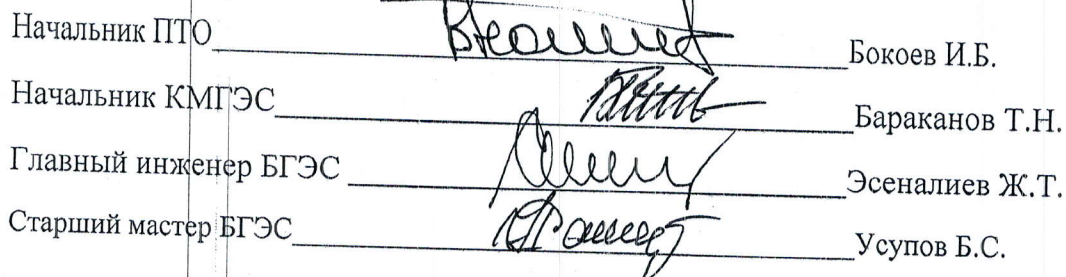 Начальник ПТО Бокоев И.Б.
Начальник КМГЭС Бараканов Т.Н.
Главный инженер БГЭС Эсеналиев Ж.Т.
Старший мастер БГЭС Усупов Б.С.